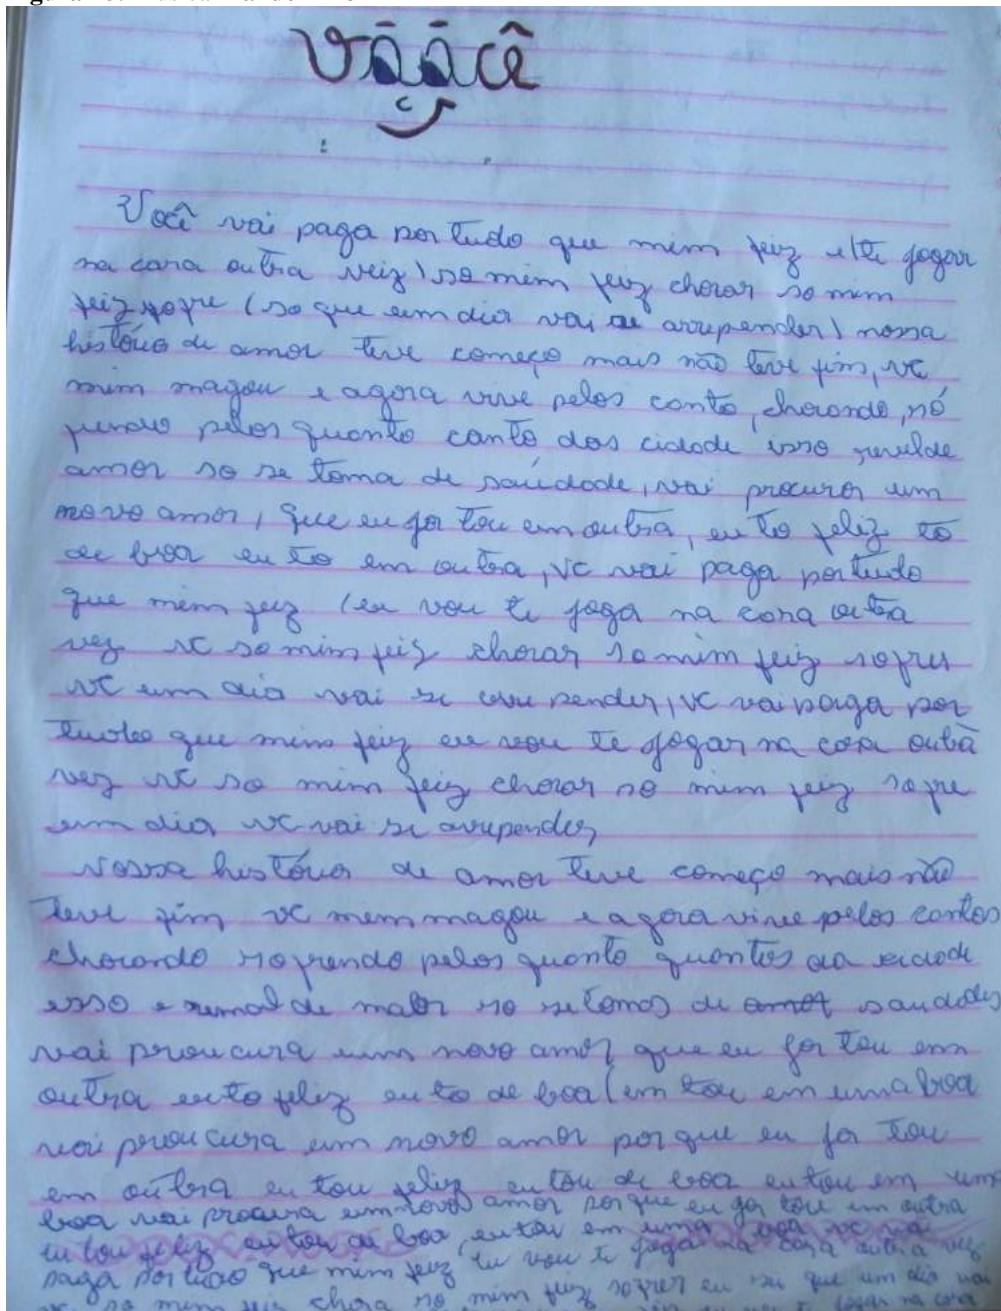 vããcê
Você vai paga por tudo que mim feiz e/te jogar
na cara outra veiz) so mim feiz chorar so mim
feiz sofre (so que um dia vai se arrepender) nossa
história de amor teve começo mais não teve fim, vc
mim magou e agora vive pelos canto, chorando, só
frendo pelos quanto canto das cidade isso
amor so se toma de saúdade, vai procurar um
novo amor, que eu ja tou em outra, eu to feliz to
de boa eu to em outra, vc vai paga por tudo
que mim feiz (eu vou te joga na cara outra
vez vc so mim feiz chorar so mim feiz sofrer
vc um dia vai se arrepender, vc vai paga por
tudo que mim feiz eu vou te jogar na cara outra
vez vc so mim feiz chorar so mim feiz sofre
um dia vc vai se arrepender
Nossa história de amor teve começo mais não
teve fim vc mim magou e agora vive pelos cantos
chorando sofrendo pelos quanto quantos da cidade
isso e de so de saudades
vai proucura um novo amor que eu ja tou em
outra eu to feliz eu to de boa (em tou em uma boa
vai proucura um novo amor porque eu ja tou
em outra eu tou feliz eu tou de boa eu tou em uma
boa vai procura um novo amor porque eu ja tou em outra
eu tou feliz eu tou de boa eu tou em uma boa vc vai
paga por tudo que mim feiz eu vou te joga na cara outra vez
vc so mim feiz chora so mim feiz sofrer eu sei que um dia vai